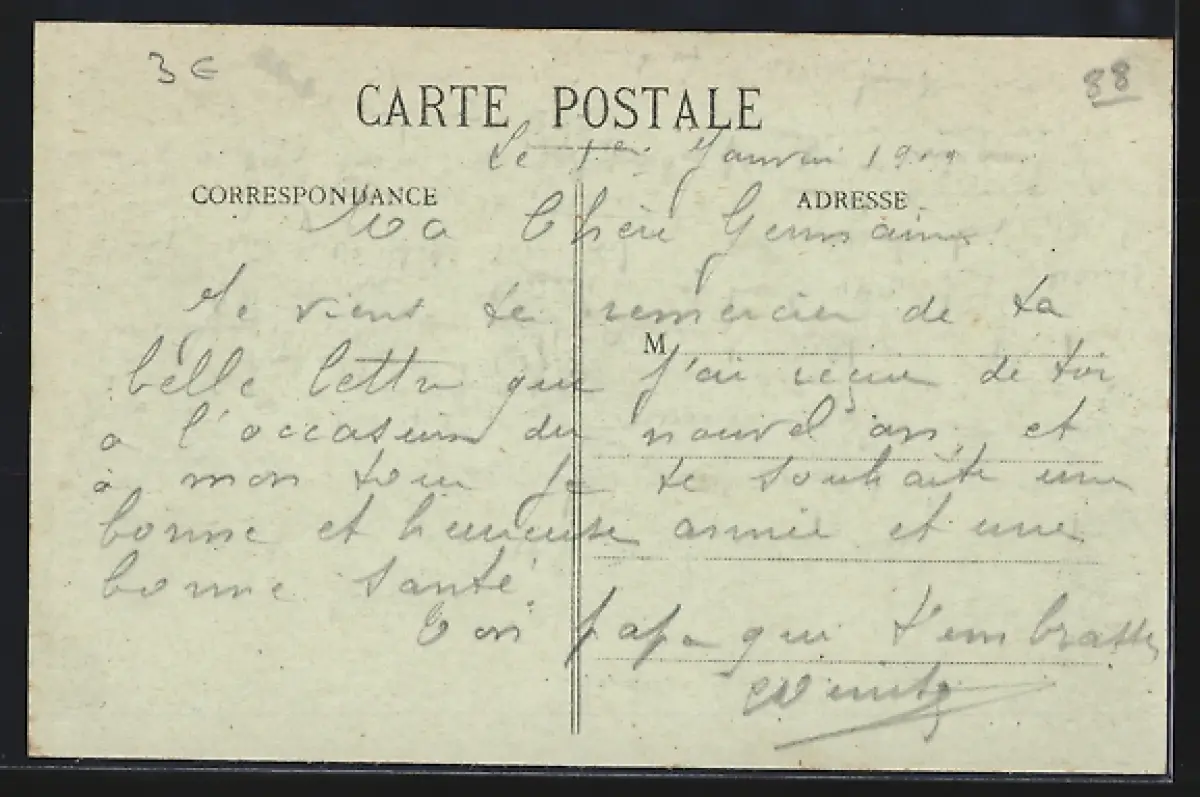 3 €
88
CARTE POSTALE
Le 1er Janvier 19
CORRESPONDANCE
ADRESSE
Ma Chère Germaine
Je viens te remercier de ta
M
belle lettre que j'ai reçue de toi
a l'occasion du nouvel an, et
à mon tour je te souhaite une
bonne et heureuse année et une
bonne santé.
Ton papa qui t'embrasse